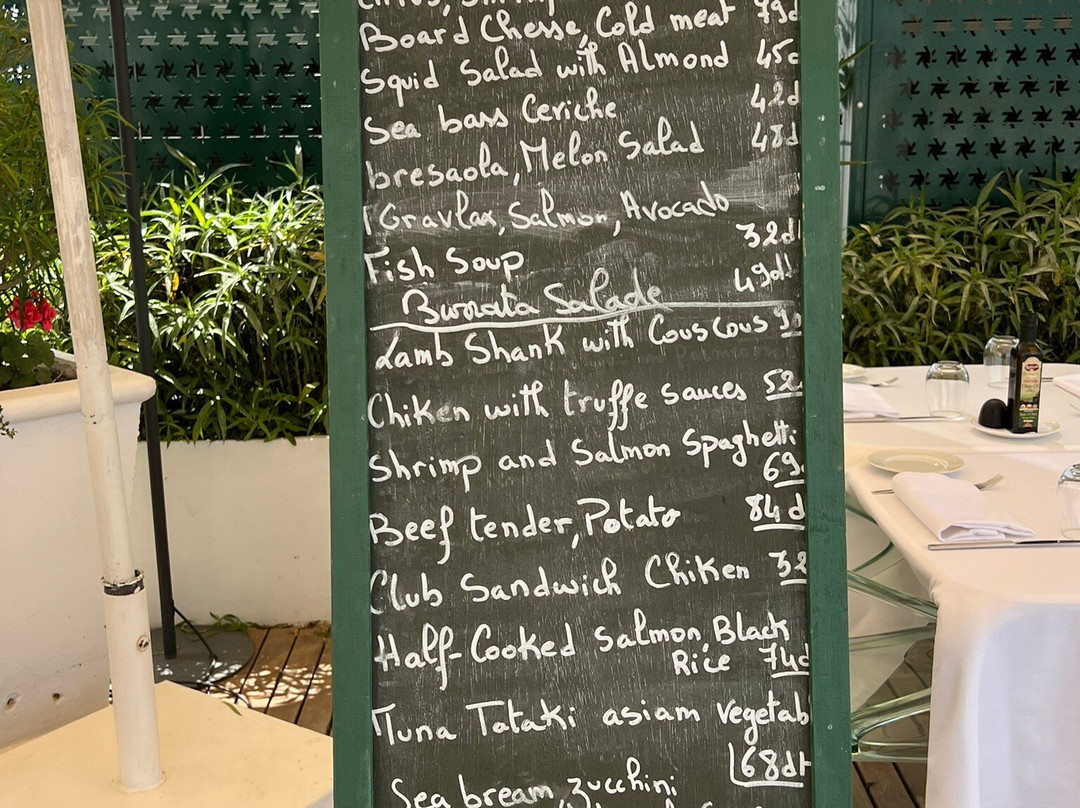 Board Chesse, Cold meat 79d
Squid Salad with Almond 45d
Sea bass Ceviche 42d
bresaola, Melon Salad 48d
Gravlax, Salmon, Avocado
Fish Soup 32dt
Burrata Salade 49dt
Lamb Shank with Couscous
Chiken with truffe sauces 52
Shrimp and Salmon Spaghetti
69
Beef tender, Potato 84d
Club Sandwich Chiken 32
Half-Cooked Salmon Black
Rice 74d
Tuna Tataki asiam vegetab
68dt
Sea bream, zucchini